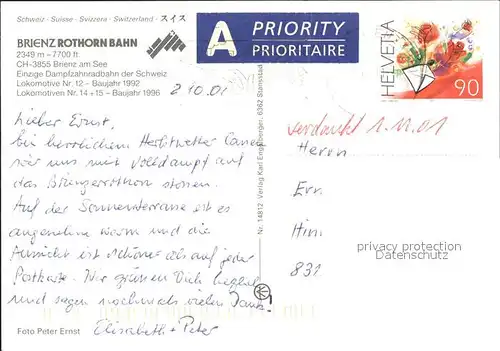 Schweiz - Suisse - Svizzera - Switzerland - スイス
BRIENZ ROTHORN BAHN
2349 m – 7700 ft.
CH-3855 Brienz am See
Einzige Dampfzahnradbahn der Schweiz
Lokomotive Nr. 12 - Baujahr 1992
Lokomotiven Nr. 14 + 15 - Baujahr 1996
A PRIORITY
PRIORITAIRE
HELVETIA
90
2 10.01
verdankt 1.11.01
Lieber Ernst,
bei herrlichem Herbstwetter lassen
wir uns mit Volldampf auf
das Brienzerrothorn stossen.
Auf der Sonnenterrasse ist es
angenehm warm und die
Aussicht ist schöner als auf jeder
Postkarte. Wir grüssen Dich herzlich
und sagen nochmals vielen Dank!
Elisabeth + Peter
Foto Peter Ernst
Nr. 14812 Verlag Karl Engelberger, 6362 Stansstad
Herrn
Ern
Him
831
privacy protection
Datenschutz